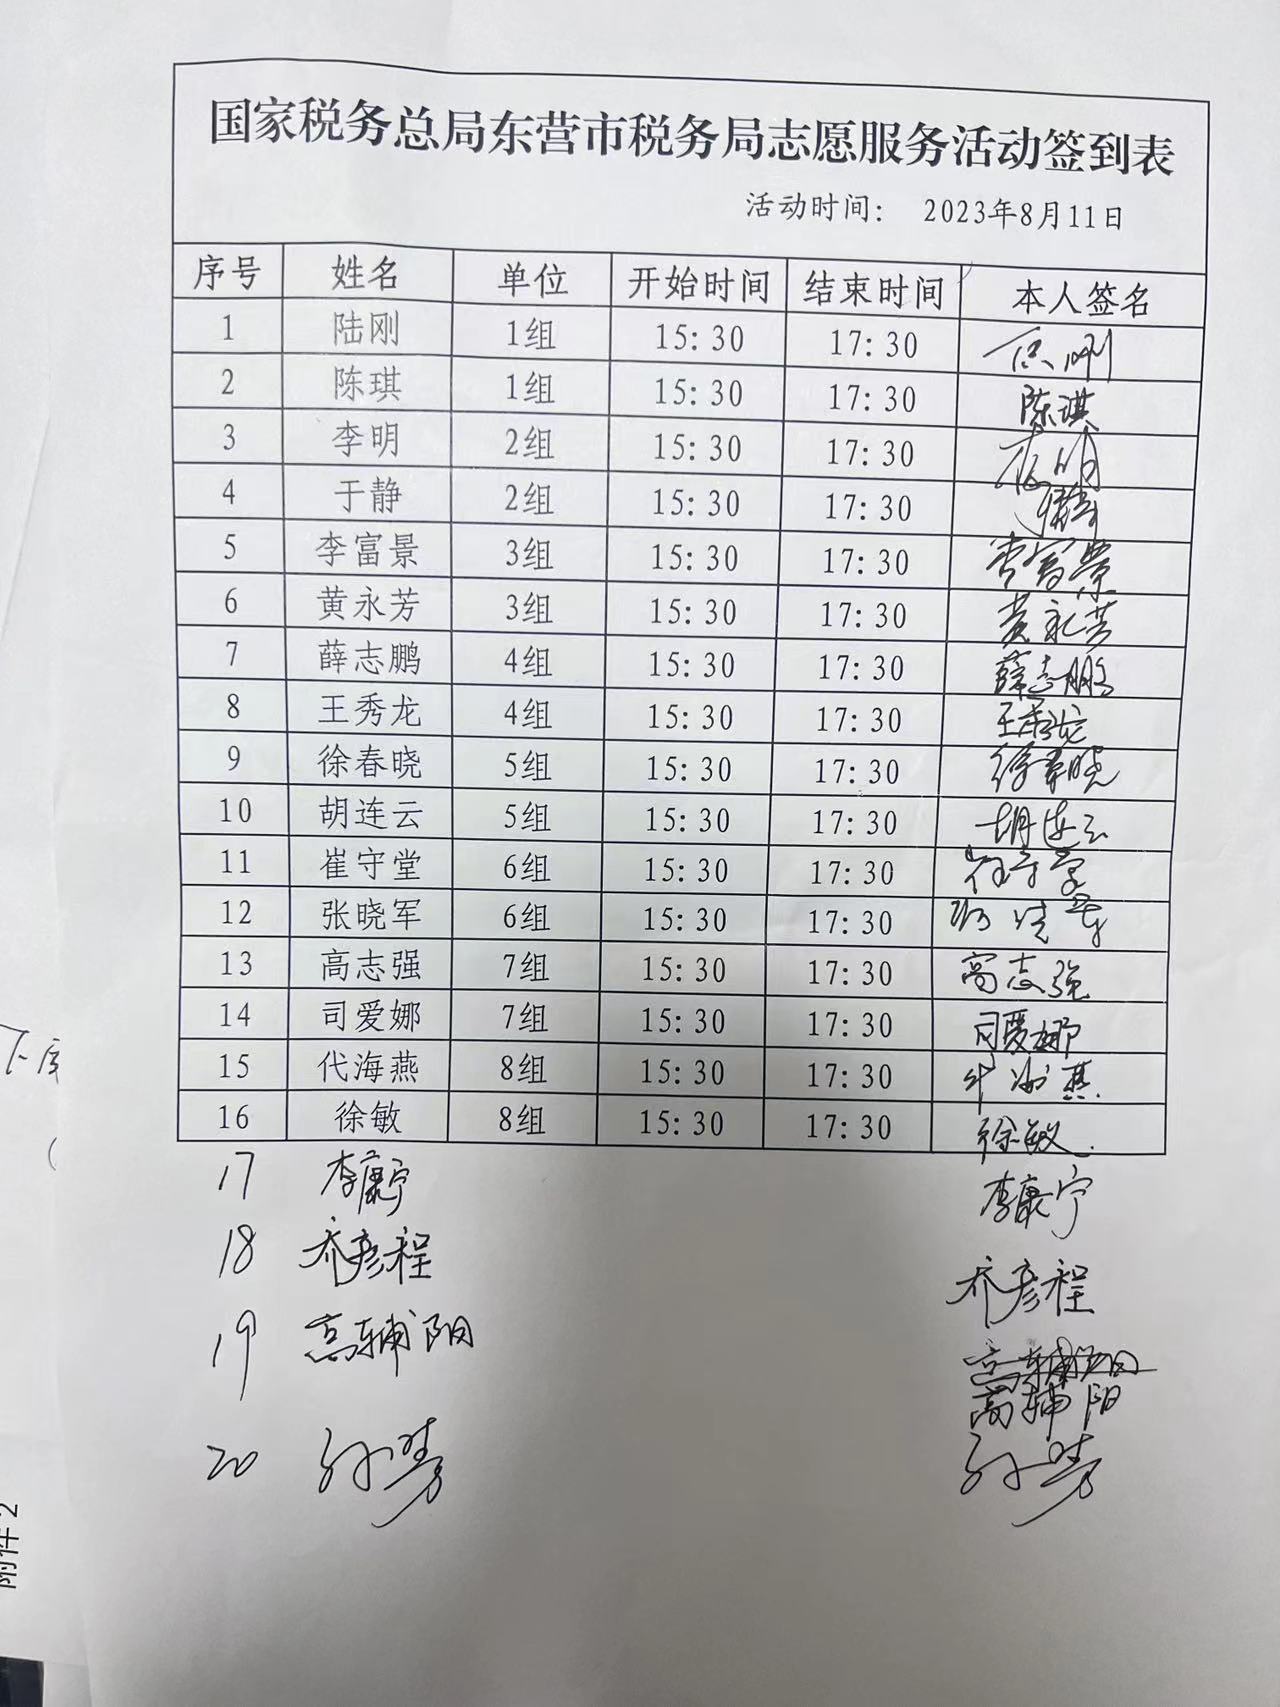 国家税务总局东营市税务局志愿服务活动签到表
活动时间： 2023年8月11日
序号 姓名 单位 开始时间 结束时间 本人签名
1 陆刚 1组 15:30 17:30
2 陈琪 1组 15:30 17:30 陈琪
3 李明 2组 15:30 17:30
4 于静 2组 15:30 17:30
5 李富景 3组 15:30 17:30
6 黄永芳 3组 15:30 17:30 黄永芳
7 薛志鹏 4组 15:30 17:30 薛志鹏
8 王秀龙 4组 15:30 17:30 王秀龙
9 徐春晓 5组 15:30 17:30 徐春晓
10 胡连云 5组 15:30 17:30 胡连云
11 崔守堂 6组 15:30 17:30
12 张晓军 6组 15:30 17:30 张晓军
13 高志强 7组 15:30 17:30 高志强
14 司爱娜 7组 15:30 17:30 司爱娜
15 代海燕 8组 15:30 17:30 代海燕
16 徐敏 8组 15:30 17:30 徐敏
17 李康宁 李康宁
18 乔彦程 乔彦程
19 高辅阳 高辅阳
高辅阳
20
附件2